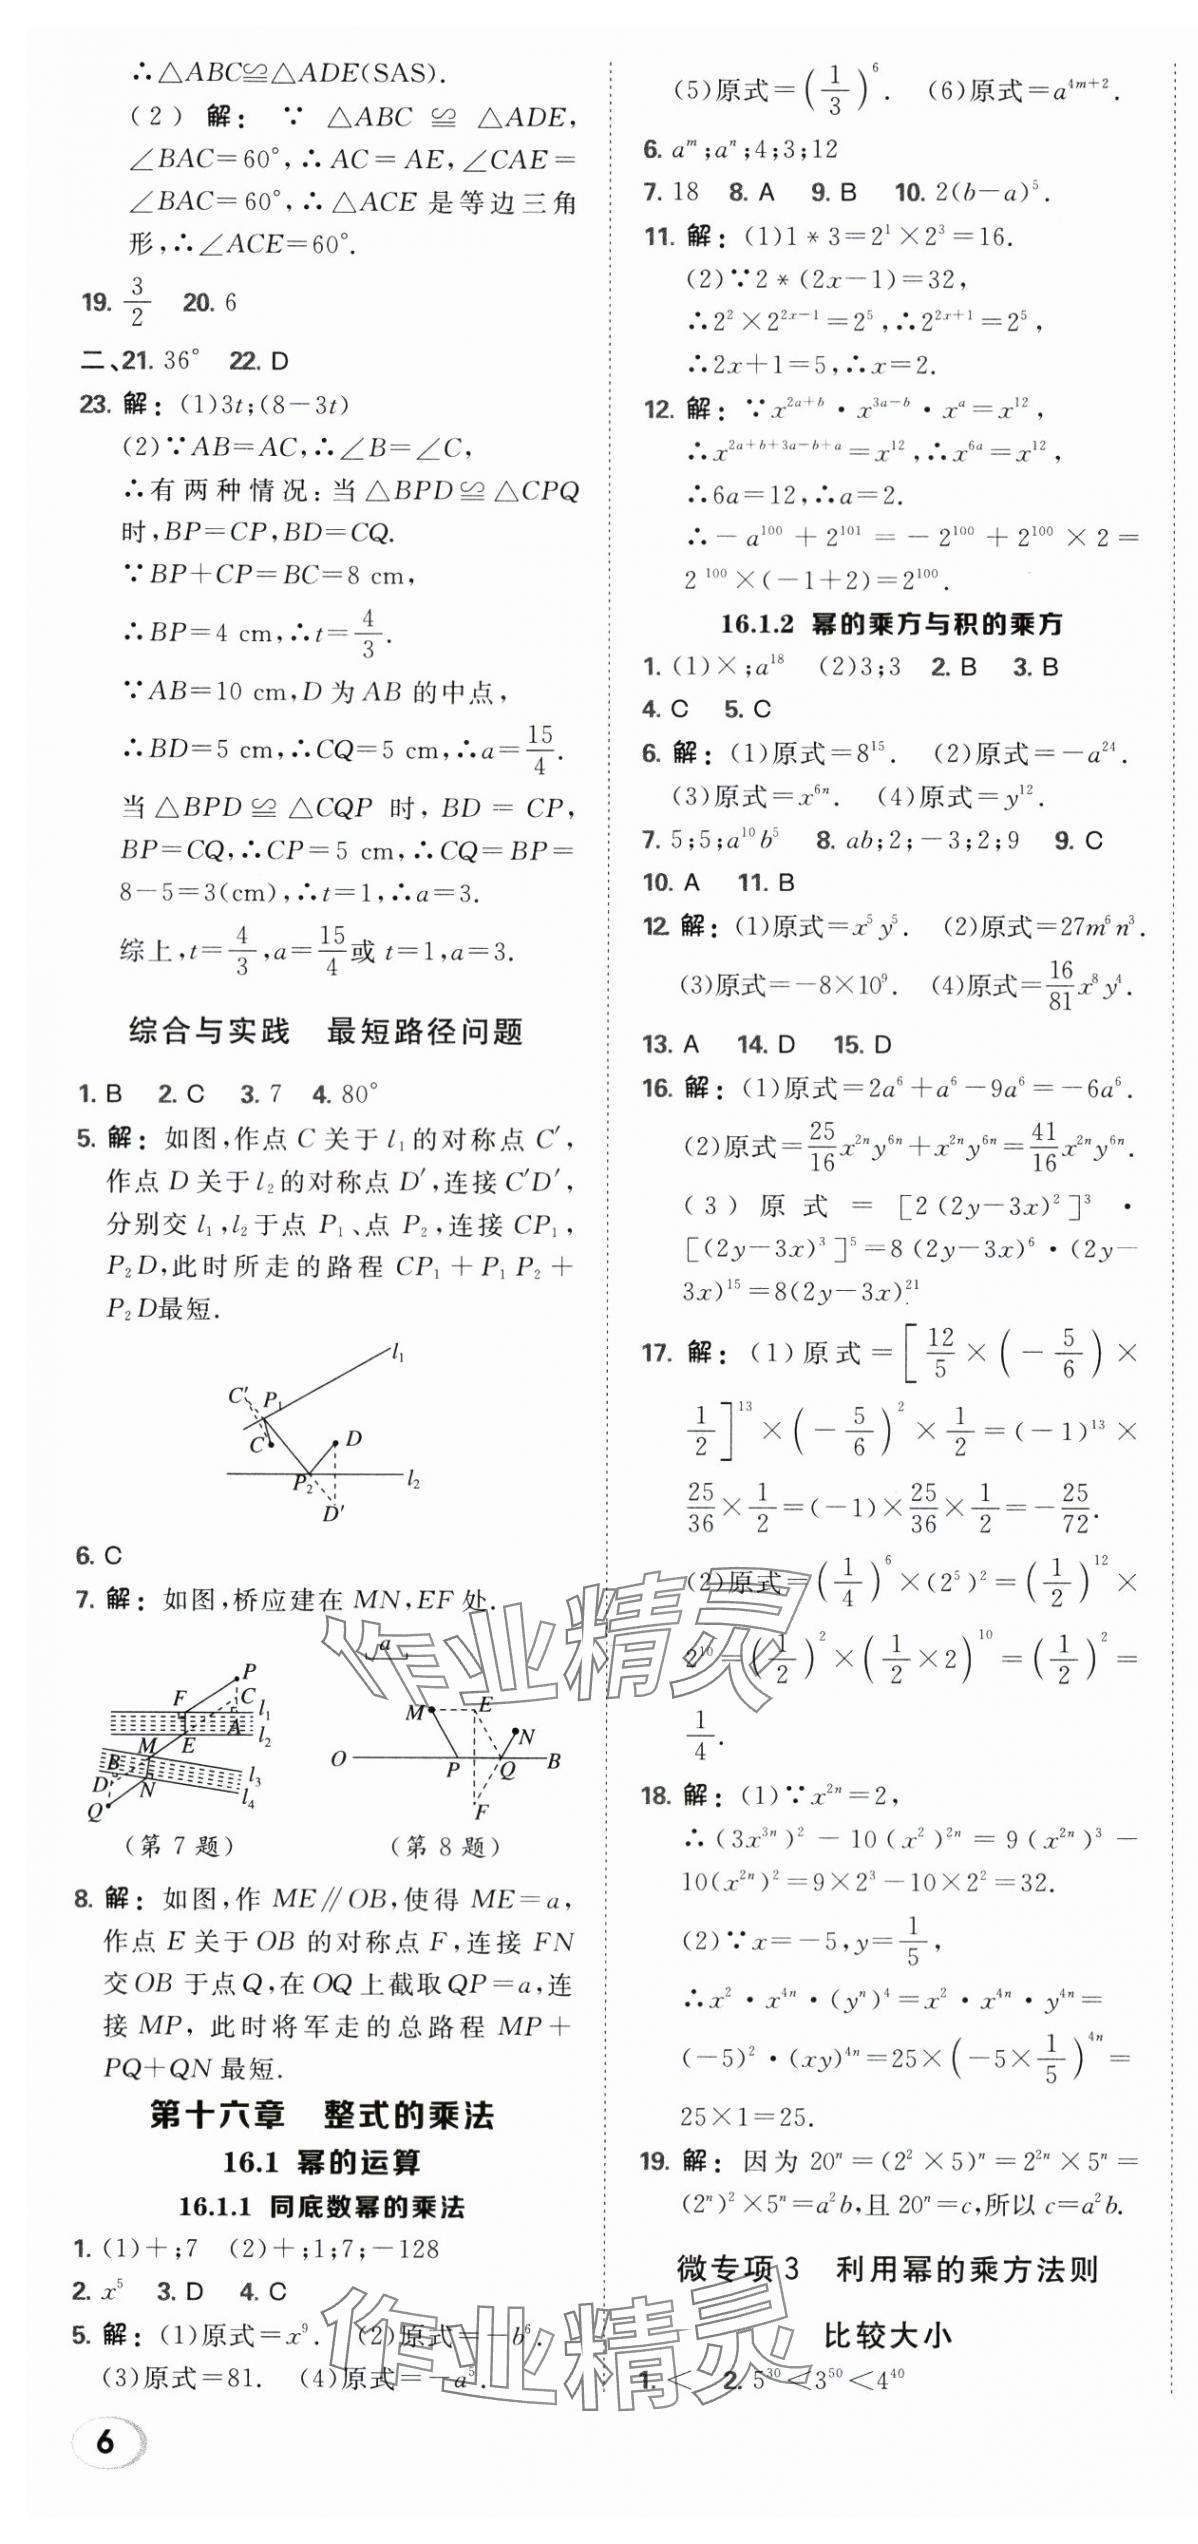 ∴△ABC≌△ADE(SAS).
(2)解：∵ △ABC ≌ △ADE,
∠BAC=60°,∴AC=AE,∠CAE=
∠BAC=60°,∴△ACE 是等边三角
形,∴∠ACE=60°.
19. 3/2 20. 6
二、21. 36° 22. D
23. 解：(1)3t;(8-3t)
(2)∵AB=AC,∴∠B=∠C,
∴有两种情况：当△BPD≌△CPQ
时,BP=CP,BD=CQ.
∵BP+CP=BC=8 cm,
∴BP=4 cm,∴t=4/3.
∵AB=10 cm,D 为 AB 的中点,
∴BD=5 cm,∴CQ=5 cm,∴a=15/4.
当 △BPD ≌ △CQP 时, BD = CP,
BP=CQ,∴CP=5 cm,∴CQ=BP=
8-5=3(cm),∴t=1,∴a=3.
综上,t=4/3,a=15/4或 t=1,a=3.
综合与实践 最短路径问题
1. B 2. C 3. 7 4. 80°
5. 解：如图,作点 C 关于 l₁ 的对称点 C′,
作点 D 关于 l₂ 的对称点 D′,连接 C′D′,
分别交 l₁,l₂ 于点 P₁、点 P₂,连接 CP₁,
P₂D,此时所走的路程 CP₁+P₁P₂+
P₂D 最短.
l₁
C′ P₁
C D
P₂ l₂
D′
6. C
7. 解：如图,桥应建在 MN,EF 处.
P
F C l₁
A
M E l₂
B
D N l₃
Q l₄
(第 7 题)
a
M E
N
O P Q B
F
(第 8 题)
8. 解：如图,作 ME∥OB,使得 ME=a,
作点 E 关于 OB 的对称点 F,连接 FN
交 OB 于点 Q,在 OQ 上截取 QP=a,连
接 MP, 此时将军走的总路程 MP+
PQ+QN 最短.
第十六章 整式的乘法
16.1 幂的运算
16.1.1 同底数幂的乘法
1. (1)+;7 (2)+;1;7;-128
2. x⁵ 3. D 4. C
5. 解：(1)原式=x⁹. (2)原式=-b⁶.
(3)原式=81. (4)原式=-a⁵.
6
(5)原式=(1/3)⁶. (6)原式=a^{4m+2}.
6. a^m;a^n;4;3;12
7. 18 8. A 9. B 10. 2(b-a)⁵.
11. 解：(1)1*3=2¹×2³=16.
(2)∵2*(2x-1)=32,
∴2²×2^{2x-1}=2⁵,∴2^{2x+1}=2⁵,
∴2x+1=5,∴x=2.
12. 解：∵x^{2a+b}·x^{3a-b}·x^a=x¹²,
∴x^{2a+b+3a-b+a}=x¹²,∴x^{6a}=x¹²,
∴6a=12,∴a=2.
∴-a¹⁰⁰+2¹⁰¹=-2¹⁰⁰+2¹⁰⁰×2=
2¹⁰⁰×(-1+2)=2¹⁰⁰.
16.1.2 幂的乘方与积的乘方
1. (1)×;a¹⁸ (2)3;3 2. B 3. B
4. C 5. C
6. 解：(1)原式=8¹⁵. (2)原式=-a²⁴.
(3)原式=x^{6n}. (4)原式=y¹².
7. 5;5;a¹⁰b⁵ 8. ab;2;-3;2;9 9. C
10. A 11. B
12. 解：(1)原式=x⁵y⁵. (2)原式=27m⁶n³.
(3)原式=-8×10⁹. (4)原式=16/81x⁸y⁴.
13. A 14. D 15. D
16. 解：(1)原式=2a⁶+a⁶-9a⁶=-6a⁶.
(2)原式=25/16x^{2n}y^{6n}+x^{2n}y^{6n}=41/16x^{2n}y^{6n}.
(3)原式=[2(2y-3x)²]³·
[(2y-3x)³]⁵=8(2y-3x)⁶·(2y-
3x)¹⁵=8(2y-3x)²¹.
17. 解：(1)原式=[12/5×(-5/6)×
1/2]¹³×(-5/6)²×1/2=(-1)¹³×
25/36×1/2=(-1)×25/36×1/2=-25/72.
(2)原式=(1/4)⁶×(2⁵)²=(1/2)¹²×
2¹⁰=(1/2)²×(1/2×2)¹⁰=(1/2)²=
1/4.
18. 解：(1)∵x^{2n}=2,
∴(3x^{3n})²-10(x²)^{2n}=9(x^{2n})³-
10(x^{2n})²=9×2³-10×2²=32.
(2)∵x=-5,y=1/5,
∴x²·x^{4n}·(y^n)⁴=x²·x^{4n}·y^{4n}=
(-5)²·(xy)^{4n}=25×(-5×1/5)^{4n}=
25×1=25.
19. 解：因为 20^n=(2²×5)^n=2^{2n}×5^n=
(2^n)²×5^n=a²b,且 20^n=c,所以 c=a²b.
微专项 3 利用幂的乘方法则
比较大小
1. < 2. 5³⁰<3⁵⁰<4⁴⁰
作业精灵
作业精灵